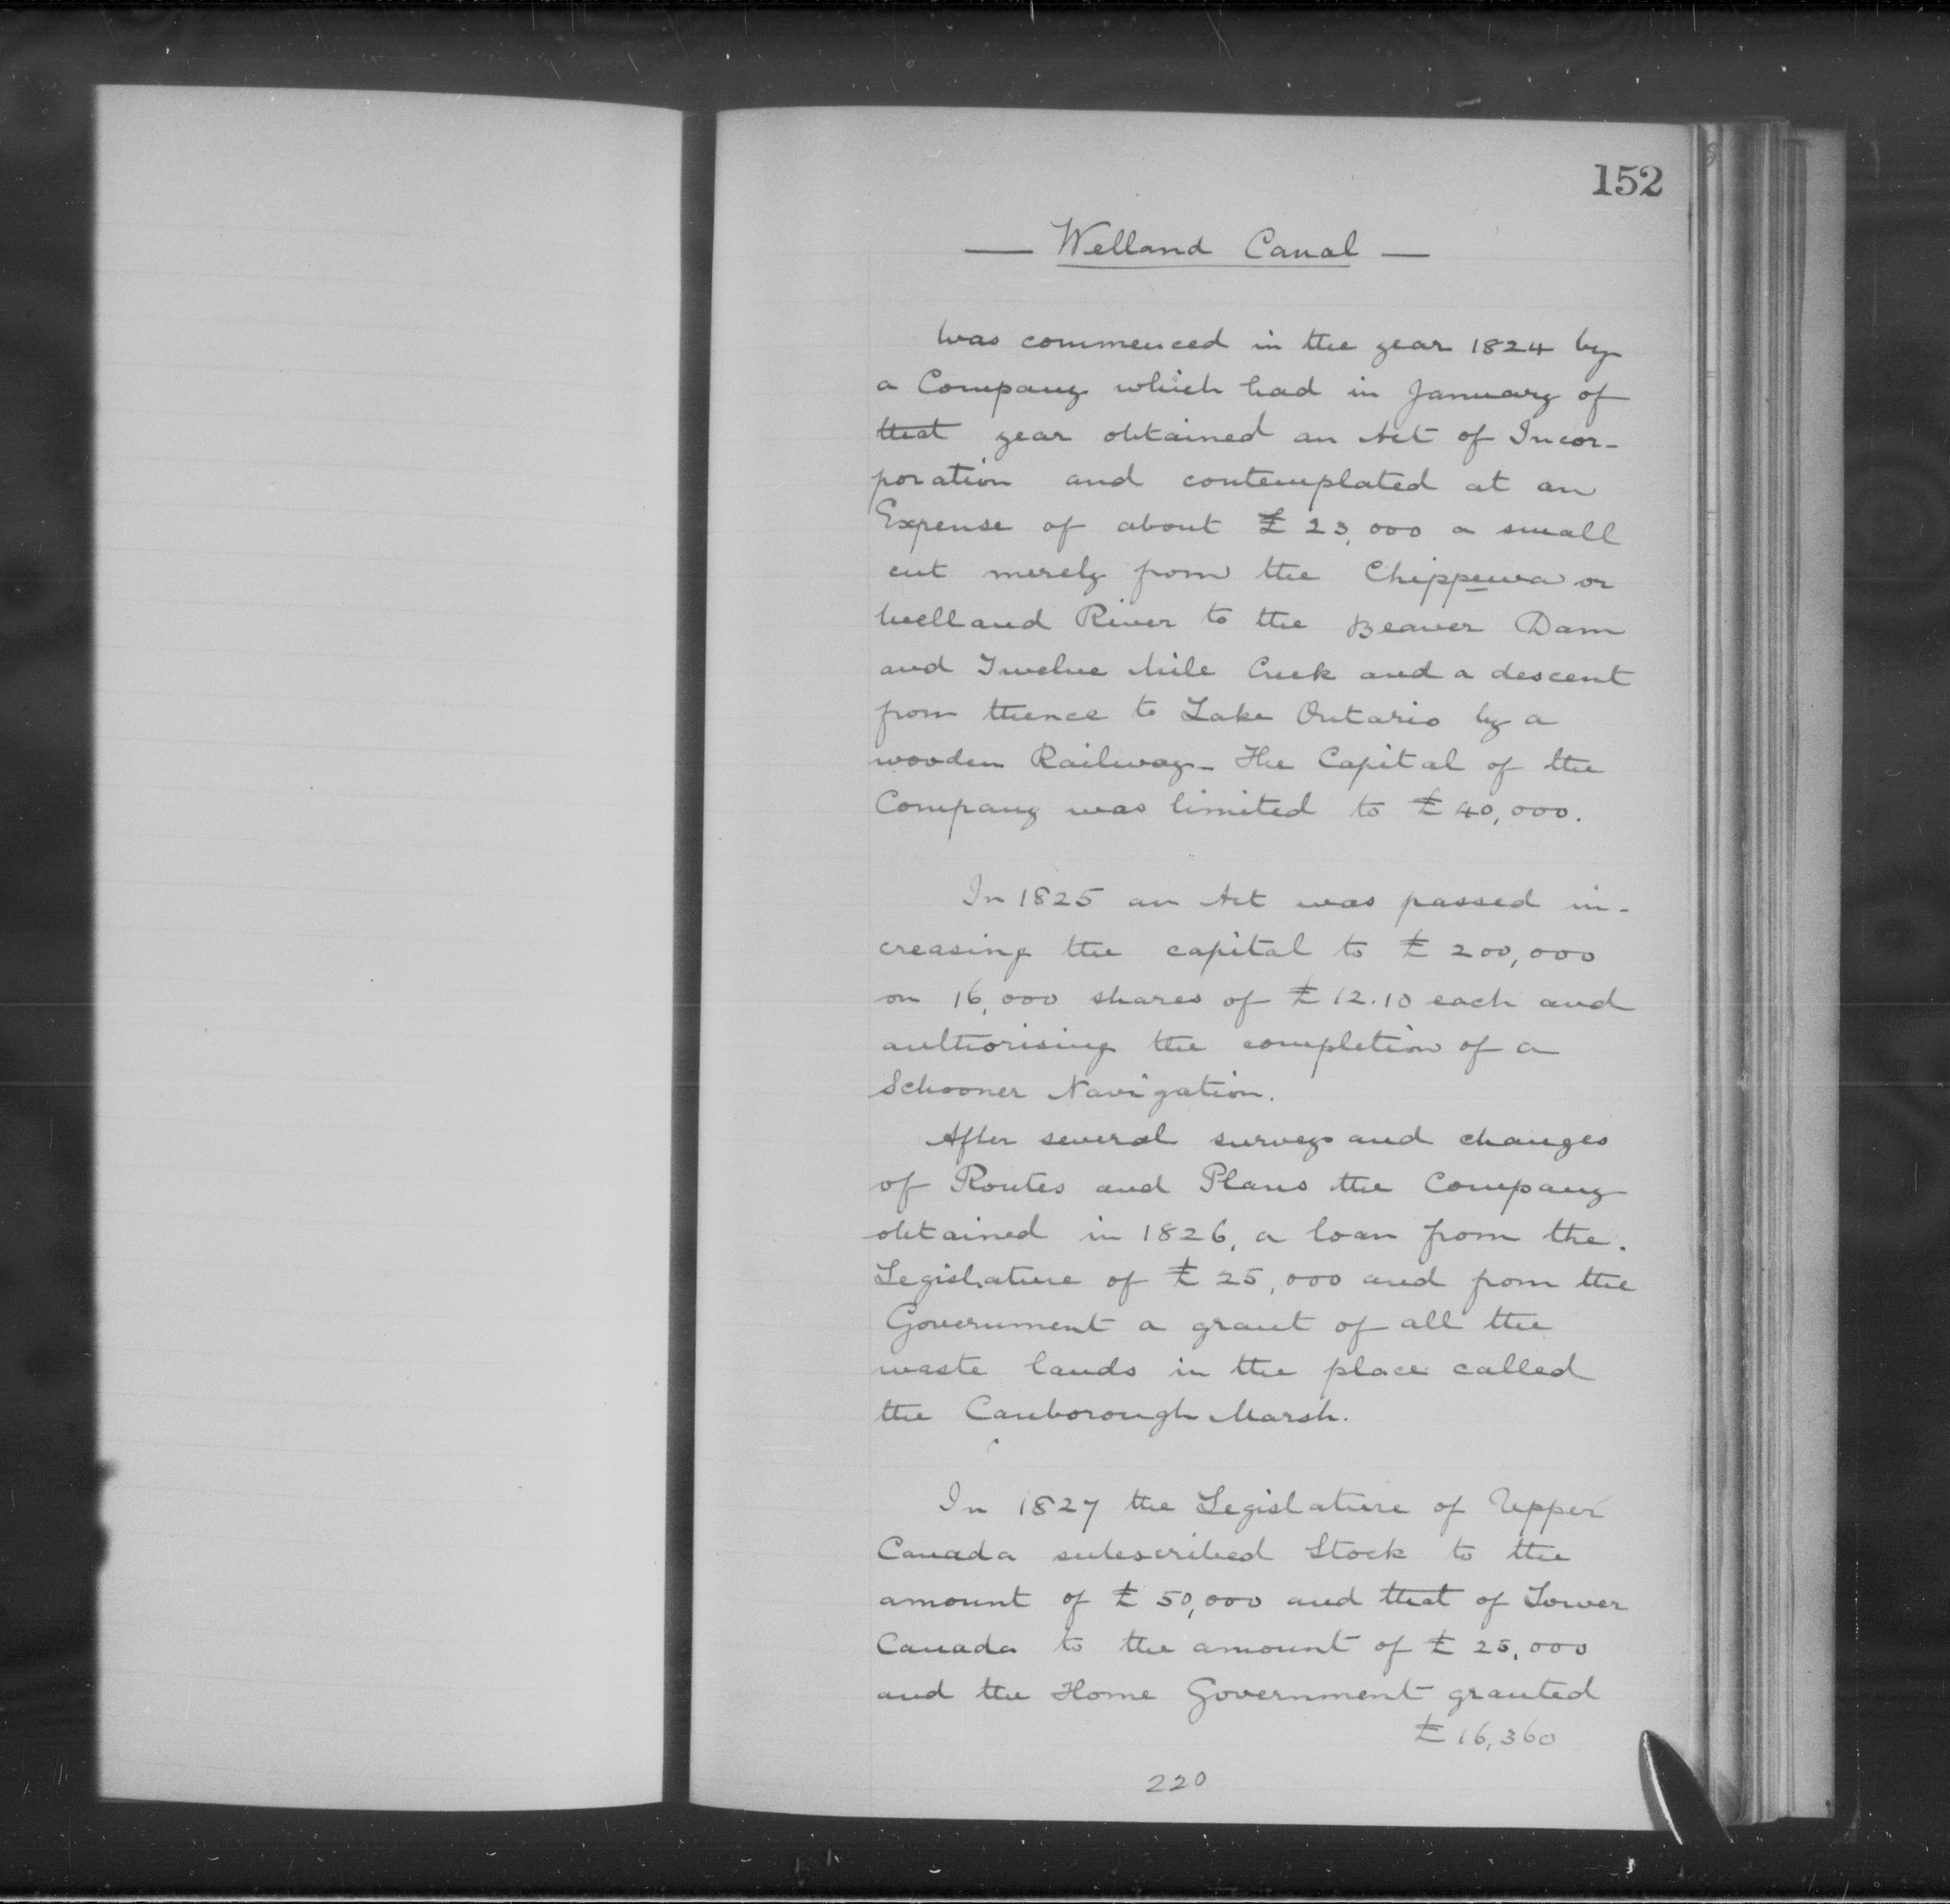 152
— Welland Canal —
Was commenced in the year 1824 by
a Company which had in January of
that year obtained an Act of Incor-
poration and contemplated at an
Expense of about £23,000 a small
cut merely from the Chippewa or
Welland River to the Beaver Dam
and Twelve Mile Creek and a descent
from thence to Lake Ontario by a
wooden Railway - The Capital of the
Company was limited to £40,000.
In 1825 an Act was passed in-
creasing the capital to £200,000
on 16,000 shares of £12.10 each and
authorising the completion of a
Schooner Navigation.
After several surveys and changes
of Routes and Plans the Company
obtained in 1826, a loan from the.
Legislature of £25,000 and from the
Government a grant of all the
waste lands in the place called
the Canborough Marsh.
In 1827 the Legislature of Upper
Canada subscribed Stock to the
amount of £50,000 and that of Lower
Canada to the amount of £25,000
and the Home Government granted
£16,360
220